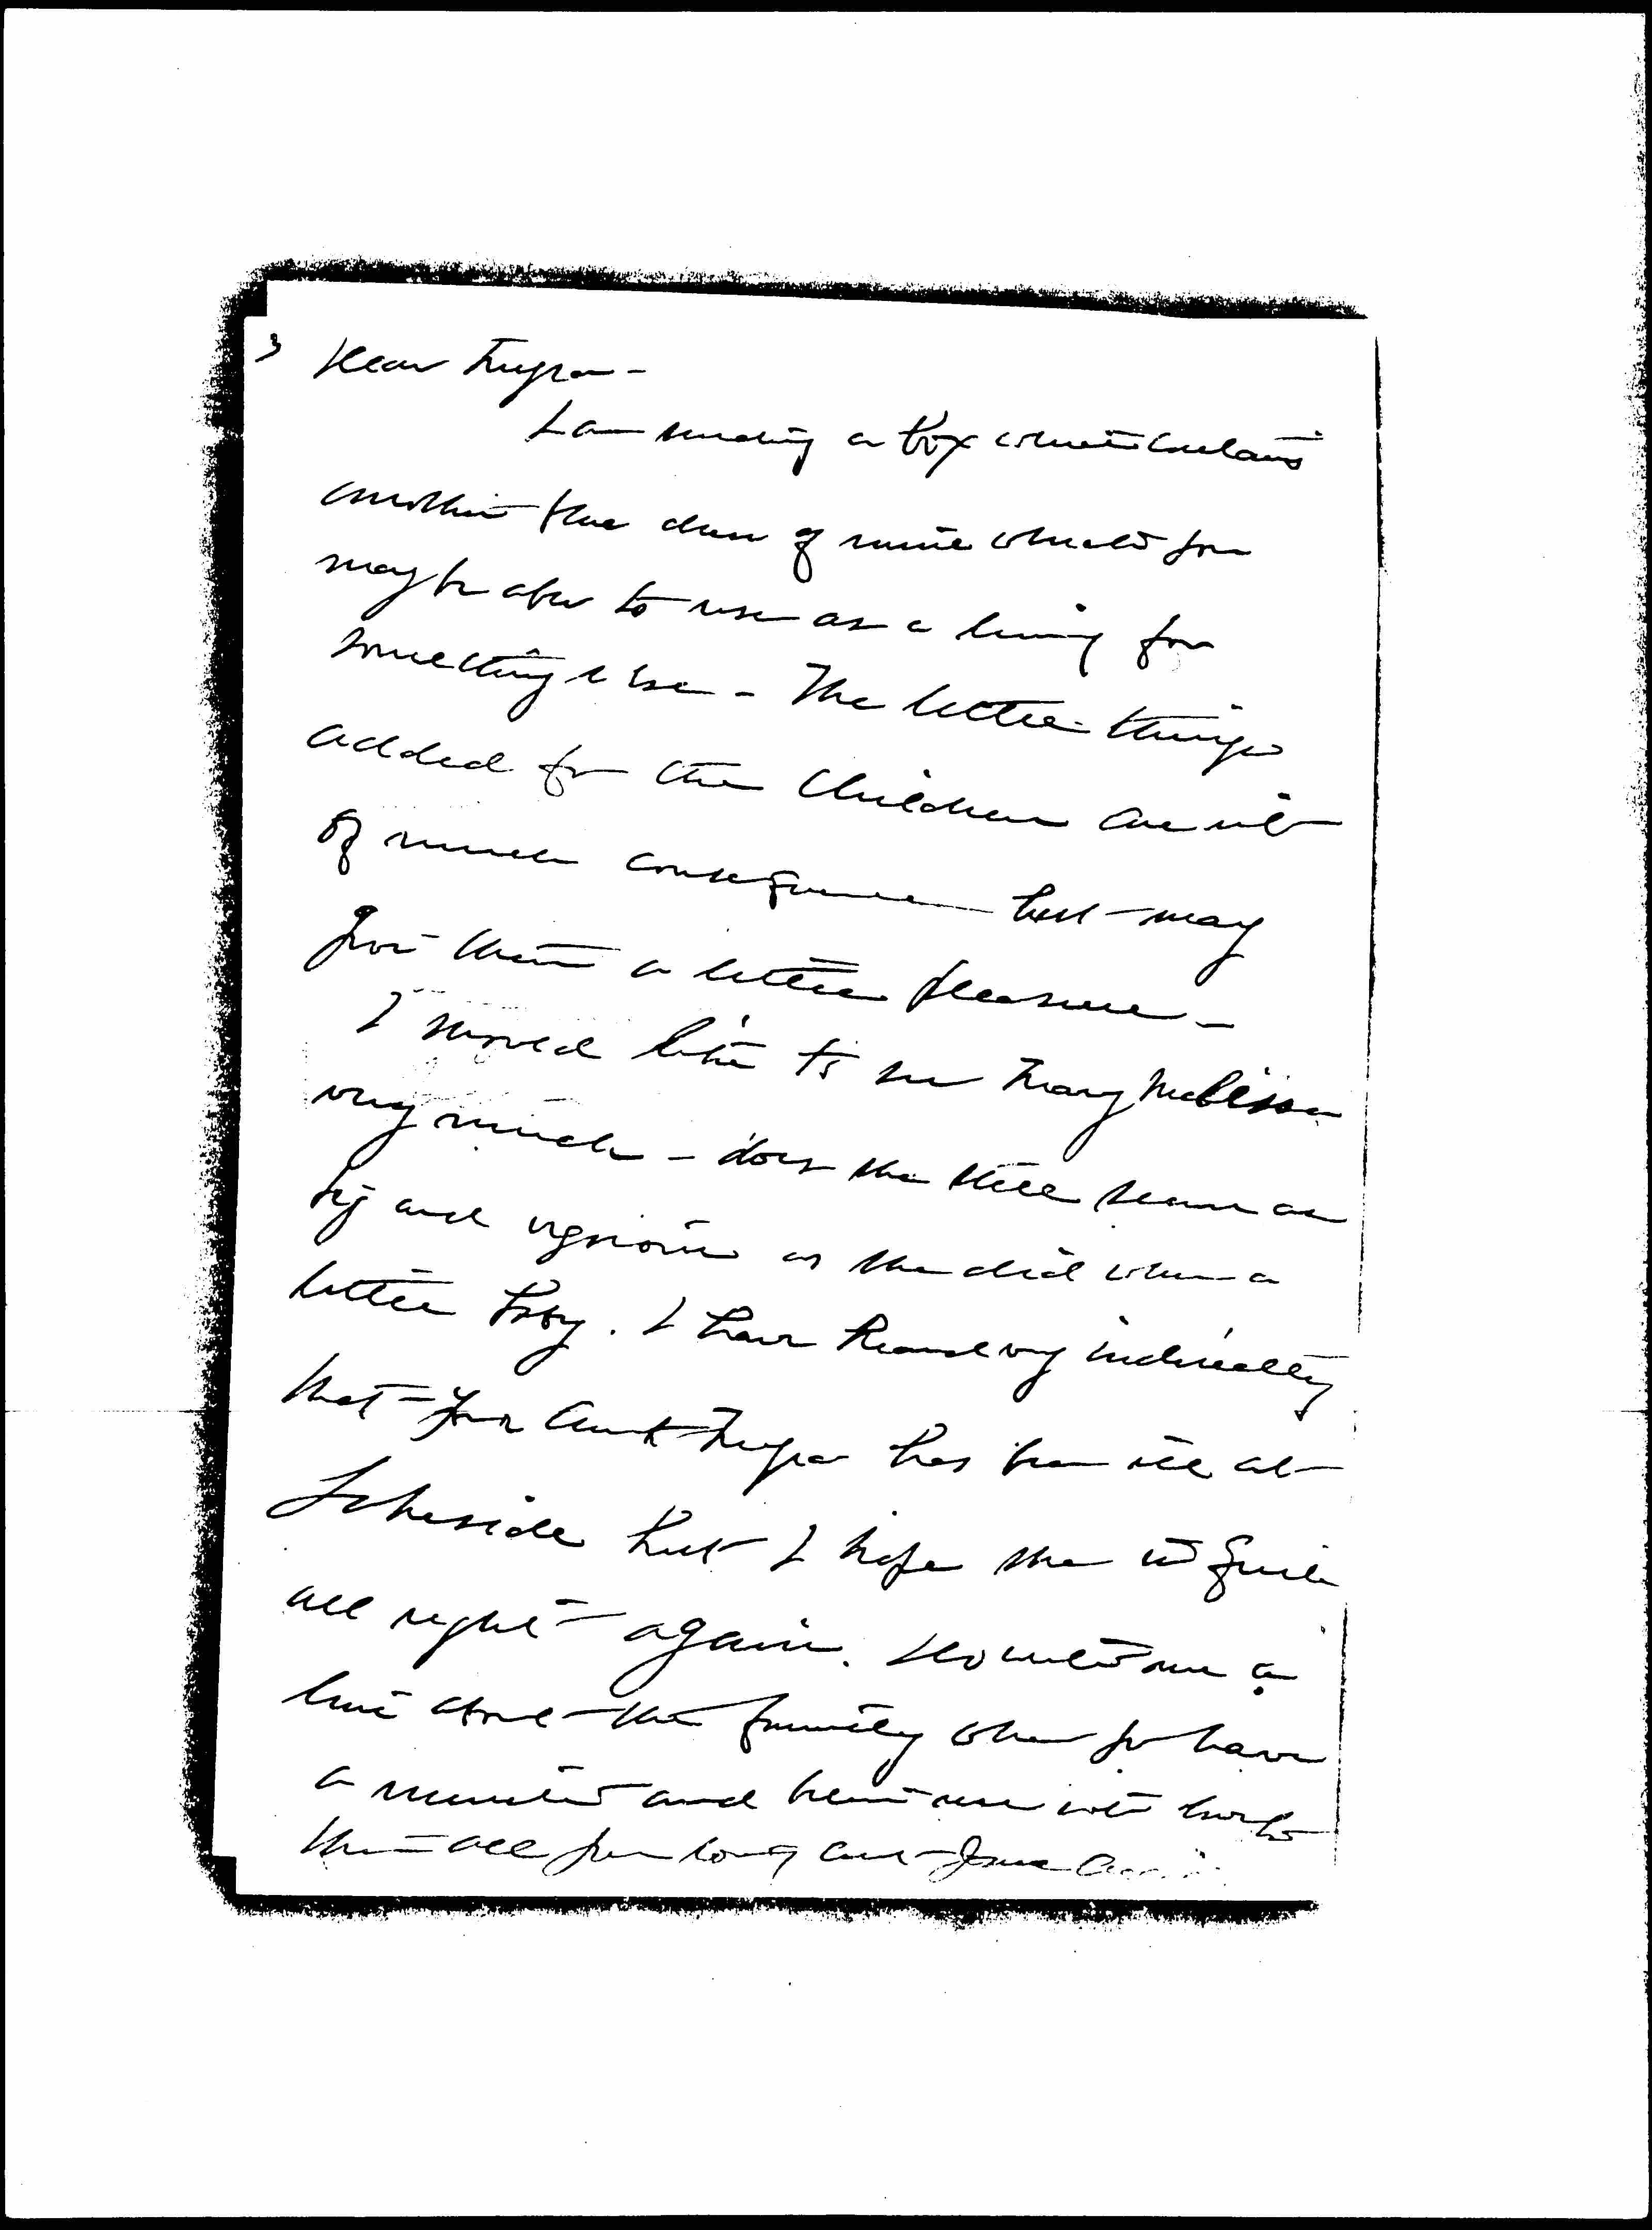 Dear
I am sending a box which contains
another blue dress of mine which you
may be able to use as a lining for
something else - The little things
added for the children are not
of much consequence but may
give them a little pleasure -
I should like to see Mary Melissa
very much - does she still seem as
big and vigorous as she did when a
little baby. I have heard very indirectly
that your Aunt has been ill at
Lakeside but I hope she is quite
all right again. Do write me a
line about the family when you have
a minute and believe me with love to
them all your loving Aunt